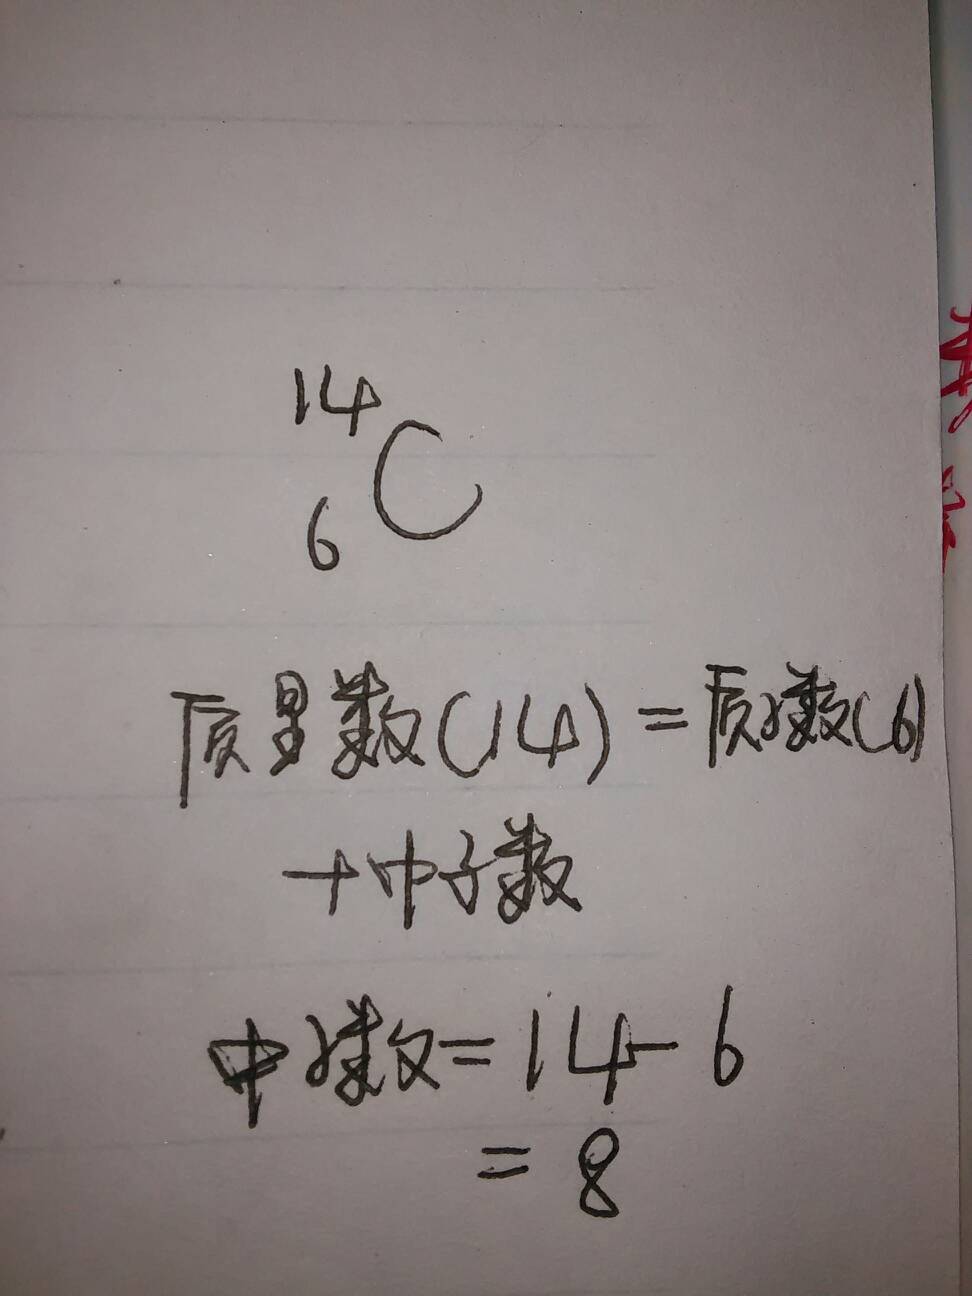 14
6 C
质量数(14)=质子数(6)
+中子数
中子数=14-6
=8